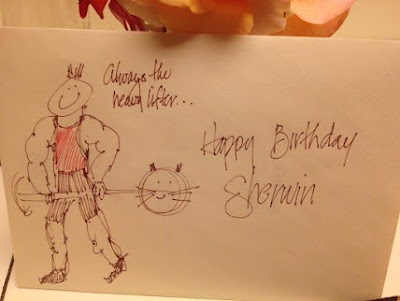 Always the
heavy lifter...
Happy Birthday
Sherwin